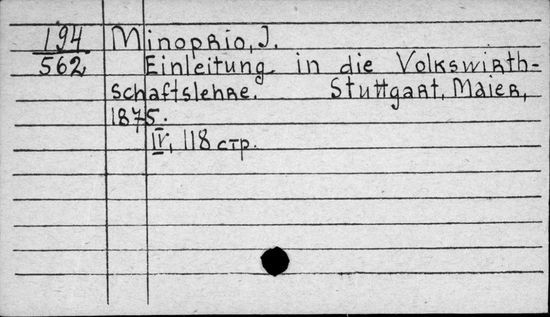 194 Minoprio, J.
562 Einleitung in die Volkswirth-
schaftslehre. Stuttgart, Maier,
1875.
IV, 118 стр.